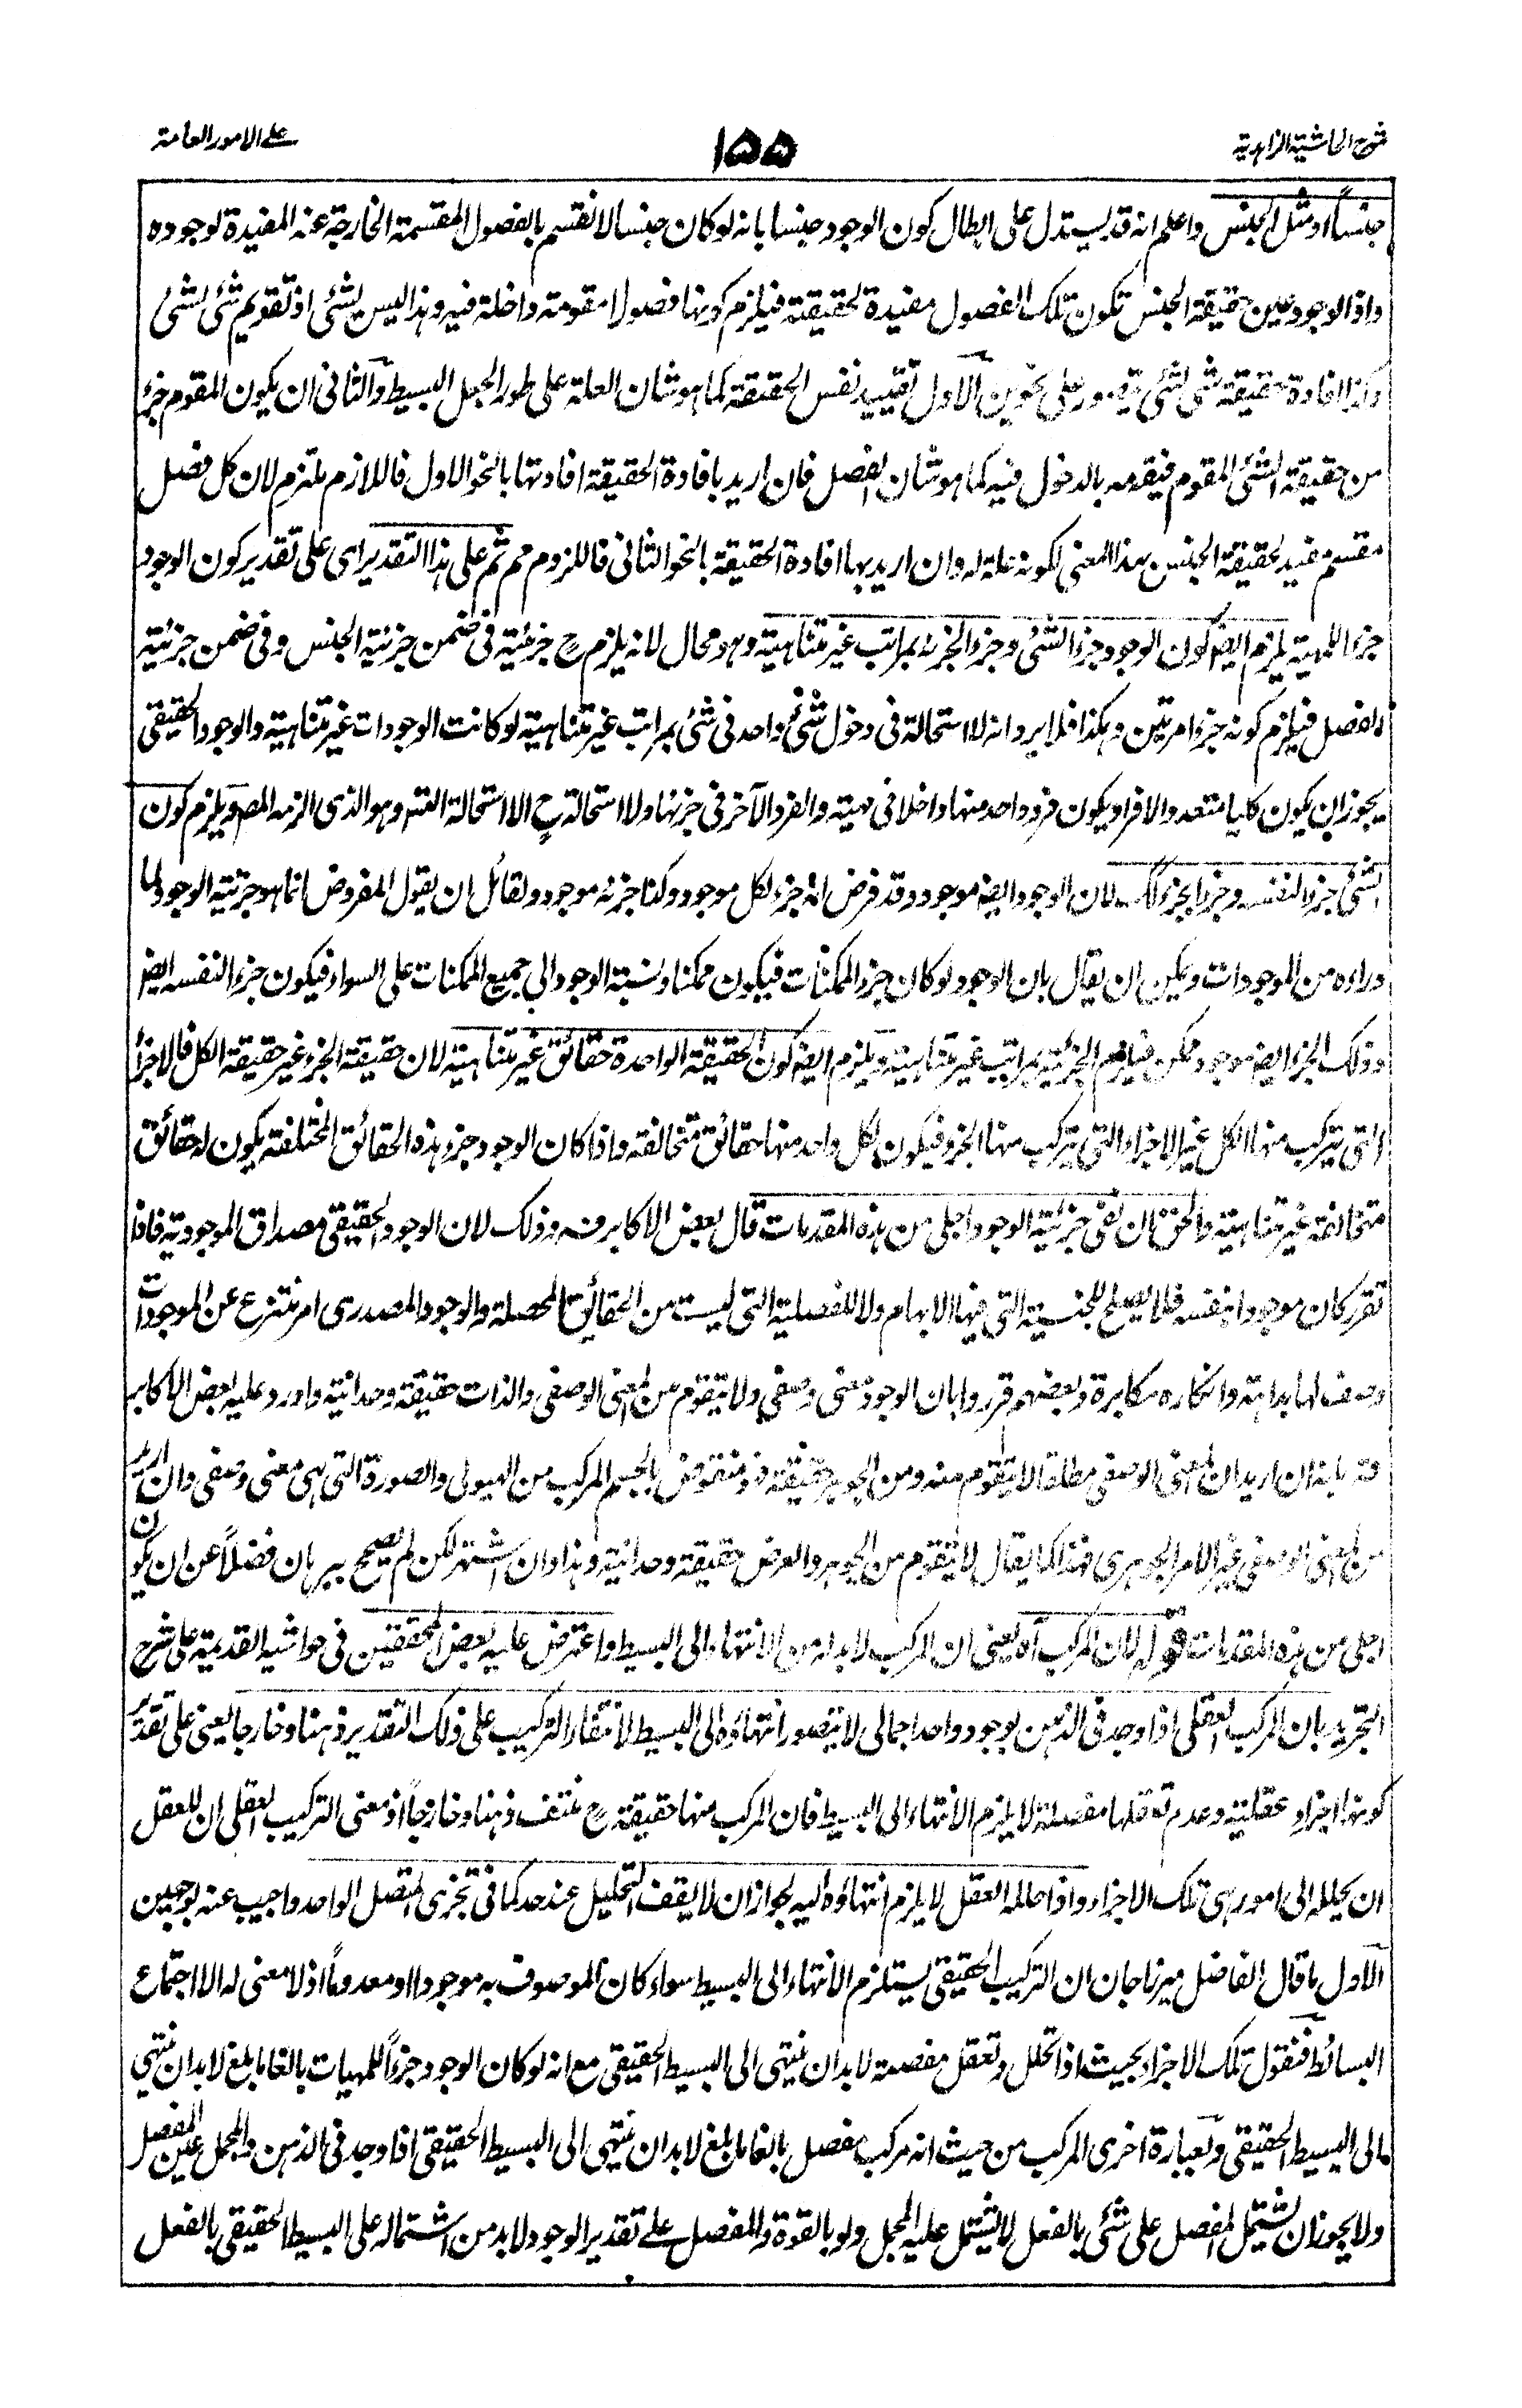 شرح الحاشية الزاهدية
١٥٥
على الامور العامة
جنسا او مثل الجنس واعلم انه قد يستدل على ابطال كون الوجود جنسا بانه لو كان جنسا لانقسم بالفصول المقسمة الخارجة عنه المفيدة لوجوده
واذ الوجود عين حقيقة الجنس تكون تلك الفصول مفيدة لحقيقته فيلزم كونها فصولا مقومة داخلة فيه وهذا ليس بشئ اذ تقويم شئ لشئ
وكذا افادة حقيقة شئ لشئ يتصور على نحوين الاول تقييد نفس الحقيقة كما هو شان العلة على طور الجعل البسيط والثانى ان يكون المقوم جزء
من حقيقة الشئ المقوم فيقومه بالدخول فيه كما هو شان الفصل فان اريد بافادة الحقيقة افادتها بالنحو الاول فاللازم ملتزم لان كل فصل
مقسم مفيد لحقيقة الجنس بهذا المعنى لكونه علة له وان اريد بها افادة الحقيقة بالنحو الثانى فاللزوم مم ثم على هذا التقدير اى على تقدير كون الوجود
جزء اللمهية يلزم ايضا كون الوجود جزء الشئ وجزء الجزء بمراتب غير متناهية وهو محال لانه يلزم ح جزئية فى ضمن جزئية الجنس وفى ضمن جزئية
الفصل فيلزم كونه جزءا مرتين وهكذا فلا يرد انه لا استحالة فى دخول شئ واحد فى شئ بمراتب غير متناهية لو كانت الوجودات غير متناهية والوجود الحقيقى
يجوز ان يكون كليا متعدد الافراد يكون فرد واحد منها داخلا فى مهية والفرد الآخر فى جزئها ولا استحالة ح الا استحالة التس وهو الذى الزمه المص ويلزم كون
الشئ جزء النفسه وجزء الجزء كك لان الوجود ايضا موجود وقد فرض انه جزء لكل موجود وكذا جزئه موجود ولقائل ان يقول المفروض انما هو جزئية الوجود لما
وراءه من الموجودات ويمكن ان يقال بان الوجود لو كان جزء الممكنات فيكون ممكنا ونسبة الوجود الى جميع الممكنات على السواء فيكون جزء النفسه ايضا
وذلك الجزء ايضا موجود ممكن فيلزم الجزئية بمراتب غير متناهية ويلزم ايضا كون الحقيقة الواحدة حقائق غير متناهية لان حقيقة الجزء غير حقيقة الكل فالاجزاء
التى يتركب منها الكل غير الاجزاء التى يتركب منها الجزء فيكون لكل واحد منها حقائق متخالفة واذا كان الوجود جزء هذه الحقائق المختلفة يكون له حقائق
متخالفة غير متناهية والحق ان نفى جزئية الوجود اجلى من هذه المقدمات قال بعض الاكابر قه وذلك لان الوجود الحقيقى مصداق الموجودية فاذا
تقرر كان موجودا بنفسه فلا يصلح للجنسية التى فيها الابهام ولا للفصلية التى ليست من الحقائق المحصلة والوجود المصدرى امر منتزع عن الموجودات
وصف لها بداهة وانكاره مكابرة وبعضهم قرروا بان الوجود معنى وصفى ولا يتقوم من المعنى الوصفى والذات حقيقة وحدانية واورد عليه بعض الاكابر
قه بانه ان اريد ان المعنى الوصفى مطلقا لا يتقوم منه ومن الجوهر حقيقة فهو منقوض بالجسم المركب من الهيولى والصورة التى هى معنى وصفى وان اريد
من المعنى الوصفى غير الامر الجوهرى فهذا كما يقال لا يتقوم من الجوهر والعرض حقيقة وحدانية وهذا وان اشتهر لكن لم يصح ببرهان فضلا عن ان يكون
اجلى من هذه المقدمات قوله لان المركب آه يعنى ان المركب لابد له من الانتهاء الى البسيط واعترض عليه بعض المحققين فى حواشيه القديمة على شرح
التجريد بان المركب العقلى اذا وجد فى الذهن بوجود واحد اجمالى لا يتصور انتهاؤه الى البسيط لانتفاء التركيب على ذلك التقدير ذهنا وخارجا يعنى على تقدير
كونها اجزاء عقلية وعدم تعقلها مفصلة لا يلزم الانتهاء الى البسيط فان المركب منها حقيقة ح منتف ذهنا وخارجا اذ معنى التركيب العقلى ان للعقل
ان يحلله الى امور هى تلك الاجزاء واذا حلله العقل لا يلزم انتهاؤه اليه لجواز ان لا يقف التحليل عند حد كما فى تجزى المتصل الواحد واجيب عنه بوجهين
الاول ما قال الفاضل ميرزا جان ان التركيب الحقيقى يستلزم الانتهاء الى البسيط سواء كان الموصوف به موجودا او معدوما اذ لا معنى له الا اجتماع
البسائط فنقول تلك الاجزاء بحيث اذا تحلل وتعقل مفصلة لابد ان ينتهى الى البسيط الحقيقى مع انه لو كان الوجود جزءا للمهيات بالغا ما بلغ لابد ان ينتهى
الى البسيط الحقيقى وبعبارة اخرى المركب من حيث انه مركب مفصل بالغا ما بلغ لابد ان ينتهى الى البسيط الحقيقى اذا وجد فى الذهن والمجمل عين المفصل
ولا يجوز ان يشتمل المفصل على شئ بالفعل لا يشتمل عليه المجمل ولو بالقوة والمفصل على تقدير الوجود لابد من اشتماله على البسيط الحقيقى بالفعل